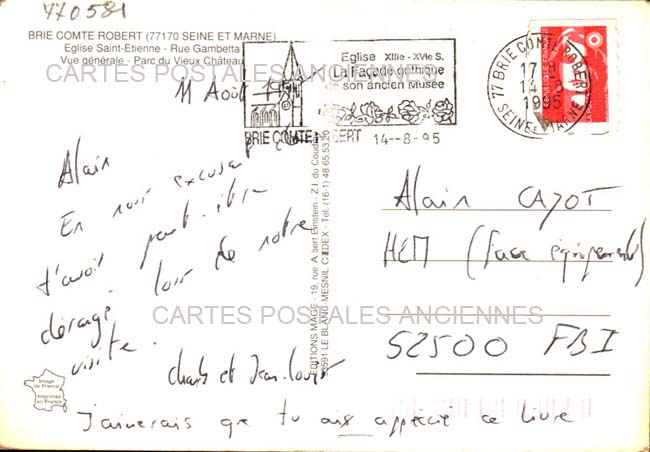 770581
BRIE COMTE ROBERT (77170 SEINE ET MARNE)
Eglise Saint-Etienne - Rue Gambetta
Vue générale - Parc du Vieux Château
CARTES POSTALES ANCIENNES
11 Août
Eglise XIIIe - XVIe S.
La Façade gothique
de son ancien Musée
BRIE COMTE ROBERT 14--8-95
77 BRIE COMTE ROBERT
17
14-8
1995
SEINE ET MARNE
Alain
En nous excusant de
t'avoir peut-être
dérangé lors de notre
visite.
et Jean-Louis
J'aimerais que tu ais apprécié ce livre
EDITIONS MAGE - 19, rue Albert Einstein - Z.I. du Coudray
93591 LE BLANC-MESNIL CEDEX - Tél. (16-1) 48.65.53.20
Alain CAYOT
HLM (face équipement)
52500 FBI
CARTES POSTALES ANCIENNES
Image
de France
Imprimée
en France